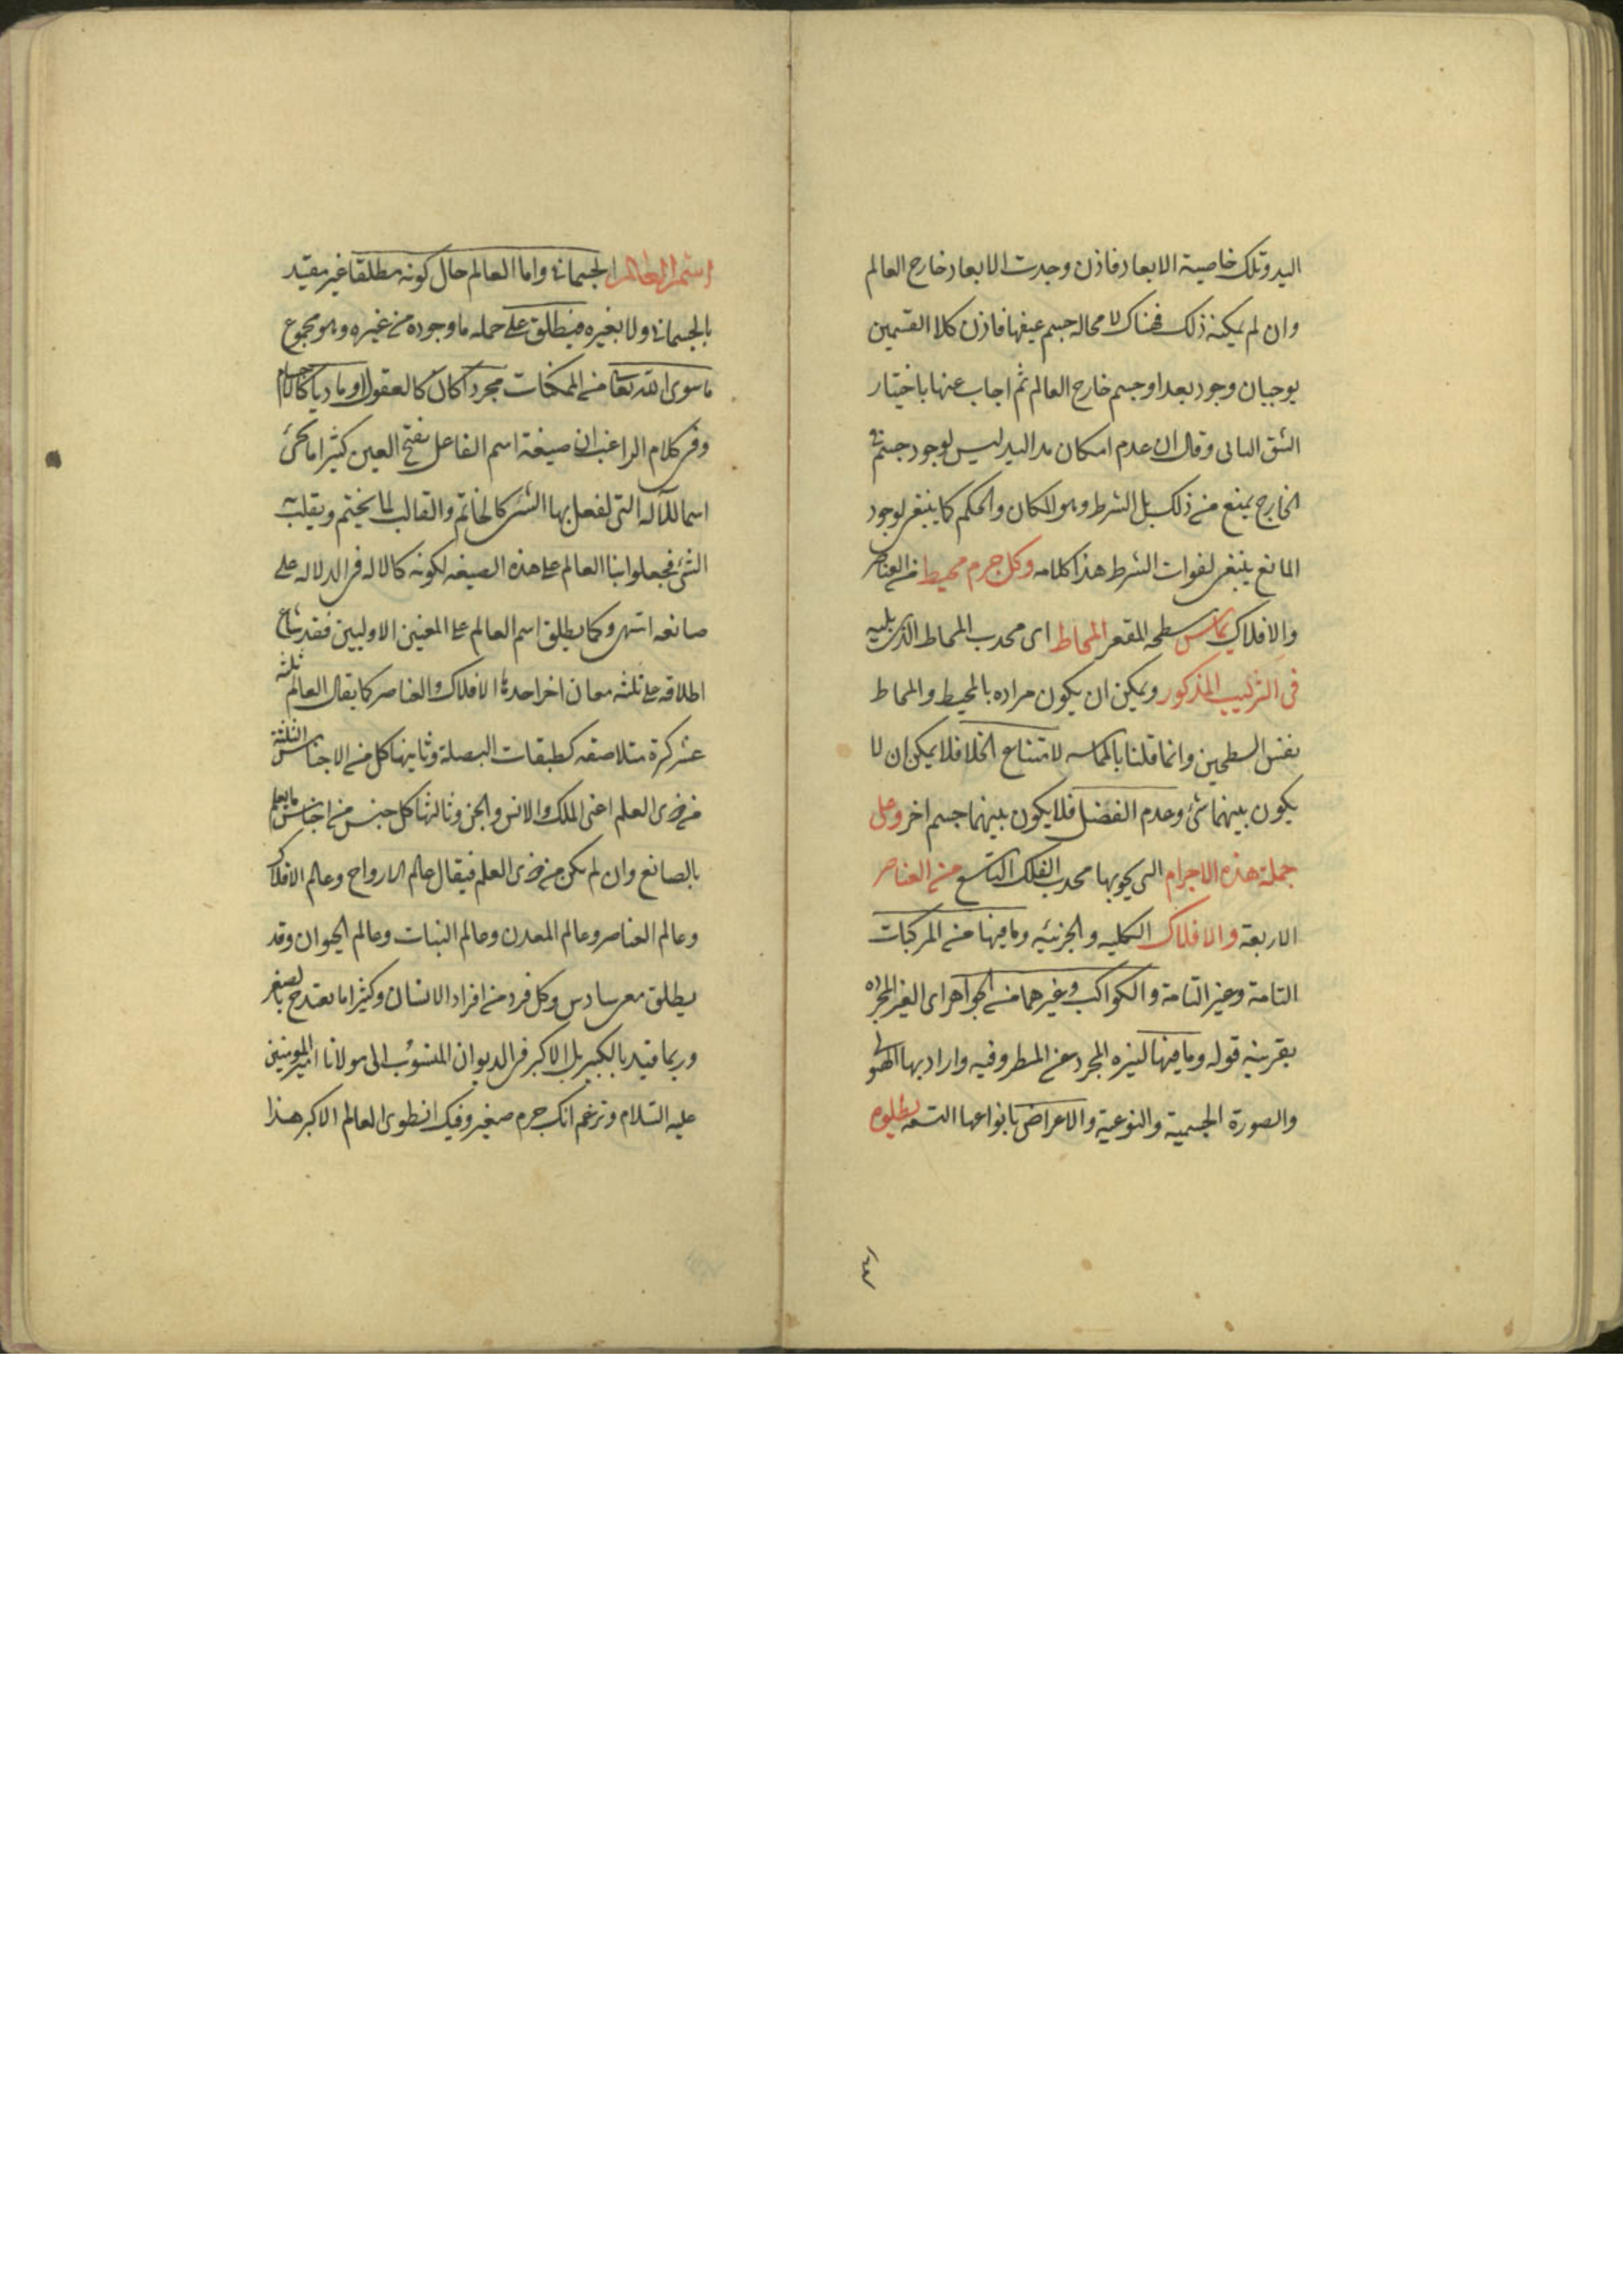 اليد وتلك خاصية الابعاد فاذن وجدت الابعاد خارج العالم
وان لم يمكنه ذلك فهناك لا محاله جسم عيقها فاذن كلا القسمين
يوجبان وجود بعد او جسم خارج العالم ثم اجاب عنها باختيار
الشق الثانى وقال ان عدم امكان مد اليد ليس لوجود جسم فى
الخارج يمنع من ذلك بل الشرط وهو المكان والحكم كما ينتفى لوجود
المانع ينتفى لفوات الشرط هذا كلامه وكل جرم محيط من العناصر
والافلاك يماس سطحه المقعر المحاط اى محدب المحاط الذى يليه
فى الترتيب المذكور ويمكن ان يكون مراده بالمحيط والمحاط
نفس السطحين وانما قلنا بالمماسه لامتناع الخلا فلا يمكن ان لا
يكون بينهما شئ وعدم الفضل فلا يكون بينهما جسم اخر وعلى
جملة هذه الاجرام التى يحويها محدب الفلك التاسع من العناصر
الاربعة والافلاك الكليه والجزئيه وما فيها من المركبات
التامة وغير التامة والكواكب وغيرهما من الجواهر اى الغير المجرده
بقرينه قوله وما فيها لتنزه المجرد عن المظروفيه واراد بها الهيولى
والصورة الجسمية والنوعية والاعراض بانواعها التسعه يطلق
اسم العالم الجسمانى واما العالم حال كونه مطلقا غير مقيد
بالجسمانى ولا بغيره فينطلق على جمله ما وجوده من غيره وهو مجموع
ما سوى الله تعالى من الممكنات مجردا كان كالعقول او ماديا كالاجسام
وفى كلام الراغب ان صيغة اسم الفاعل بفتح العين كثيرا ما تجئ
اسما للآله التى يفعل بها الشئ كالخاتم والقالب لما يختم ويقلب به
الشئ فجعلوا بنا العالم على هذه الصيغه لكونه كالاله فى الدلاله على
صانعه انتهى وكما يطلق اسم العالم على المعنين الاوليين فقد شاع
اطلاقه على ثلثه معان اخر احدها الافلاك والعناصر كما يقال العالم ثلثه
عشر كرة متلاصقه كطبقات البصلة وثانيها كل من الاجناس الثلثة
من ذوى العلم اعنى الملك والانس والجن وثالثها كل جنس من اجناس ما يعلم
بالصانع وان لم يكن من ذوى العلم فيقال عالم الارواح وعالم الافلاك
وعالم العناصر وعالم المعدن وعالم النبات وعالم الحيوان وقد
يطلق معى سادس وكل فرد من افراد الانسان وكثيرا ما يقيد ح بالصغير
وربما قيد بالكبير بل الاكبر فى الديوان المنسوب الى مولانا امير المومنين
عليه السلام وتزعم انك جرم صغير وفيك انطوى العالم الاكبر هذا